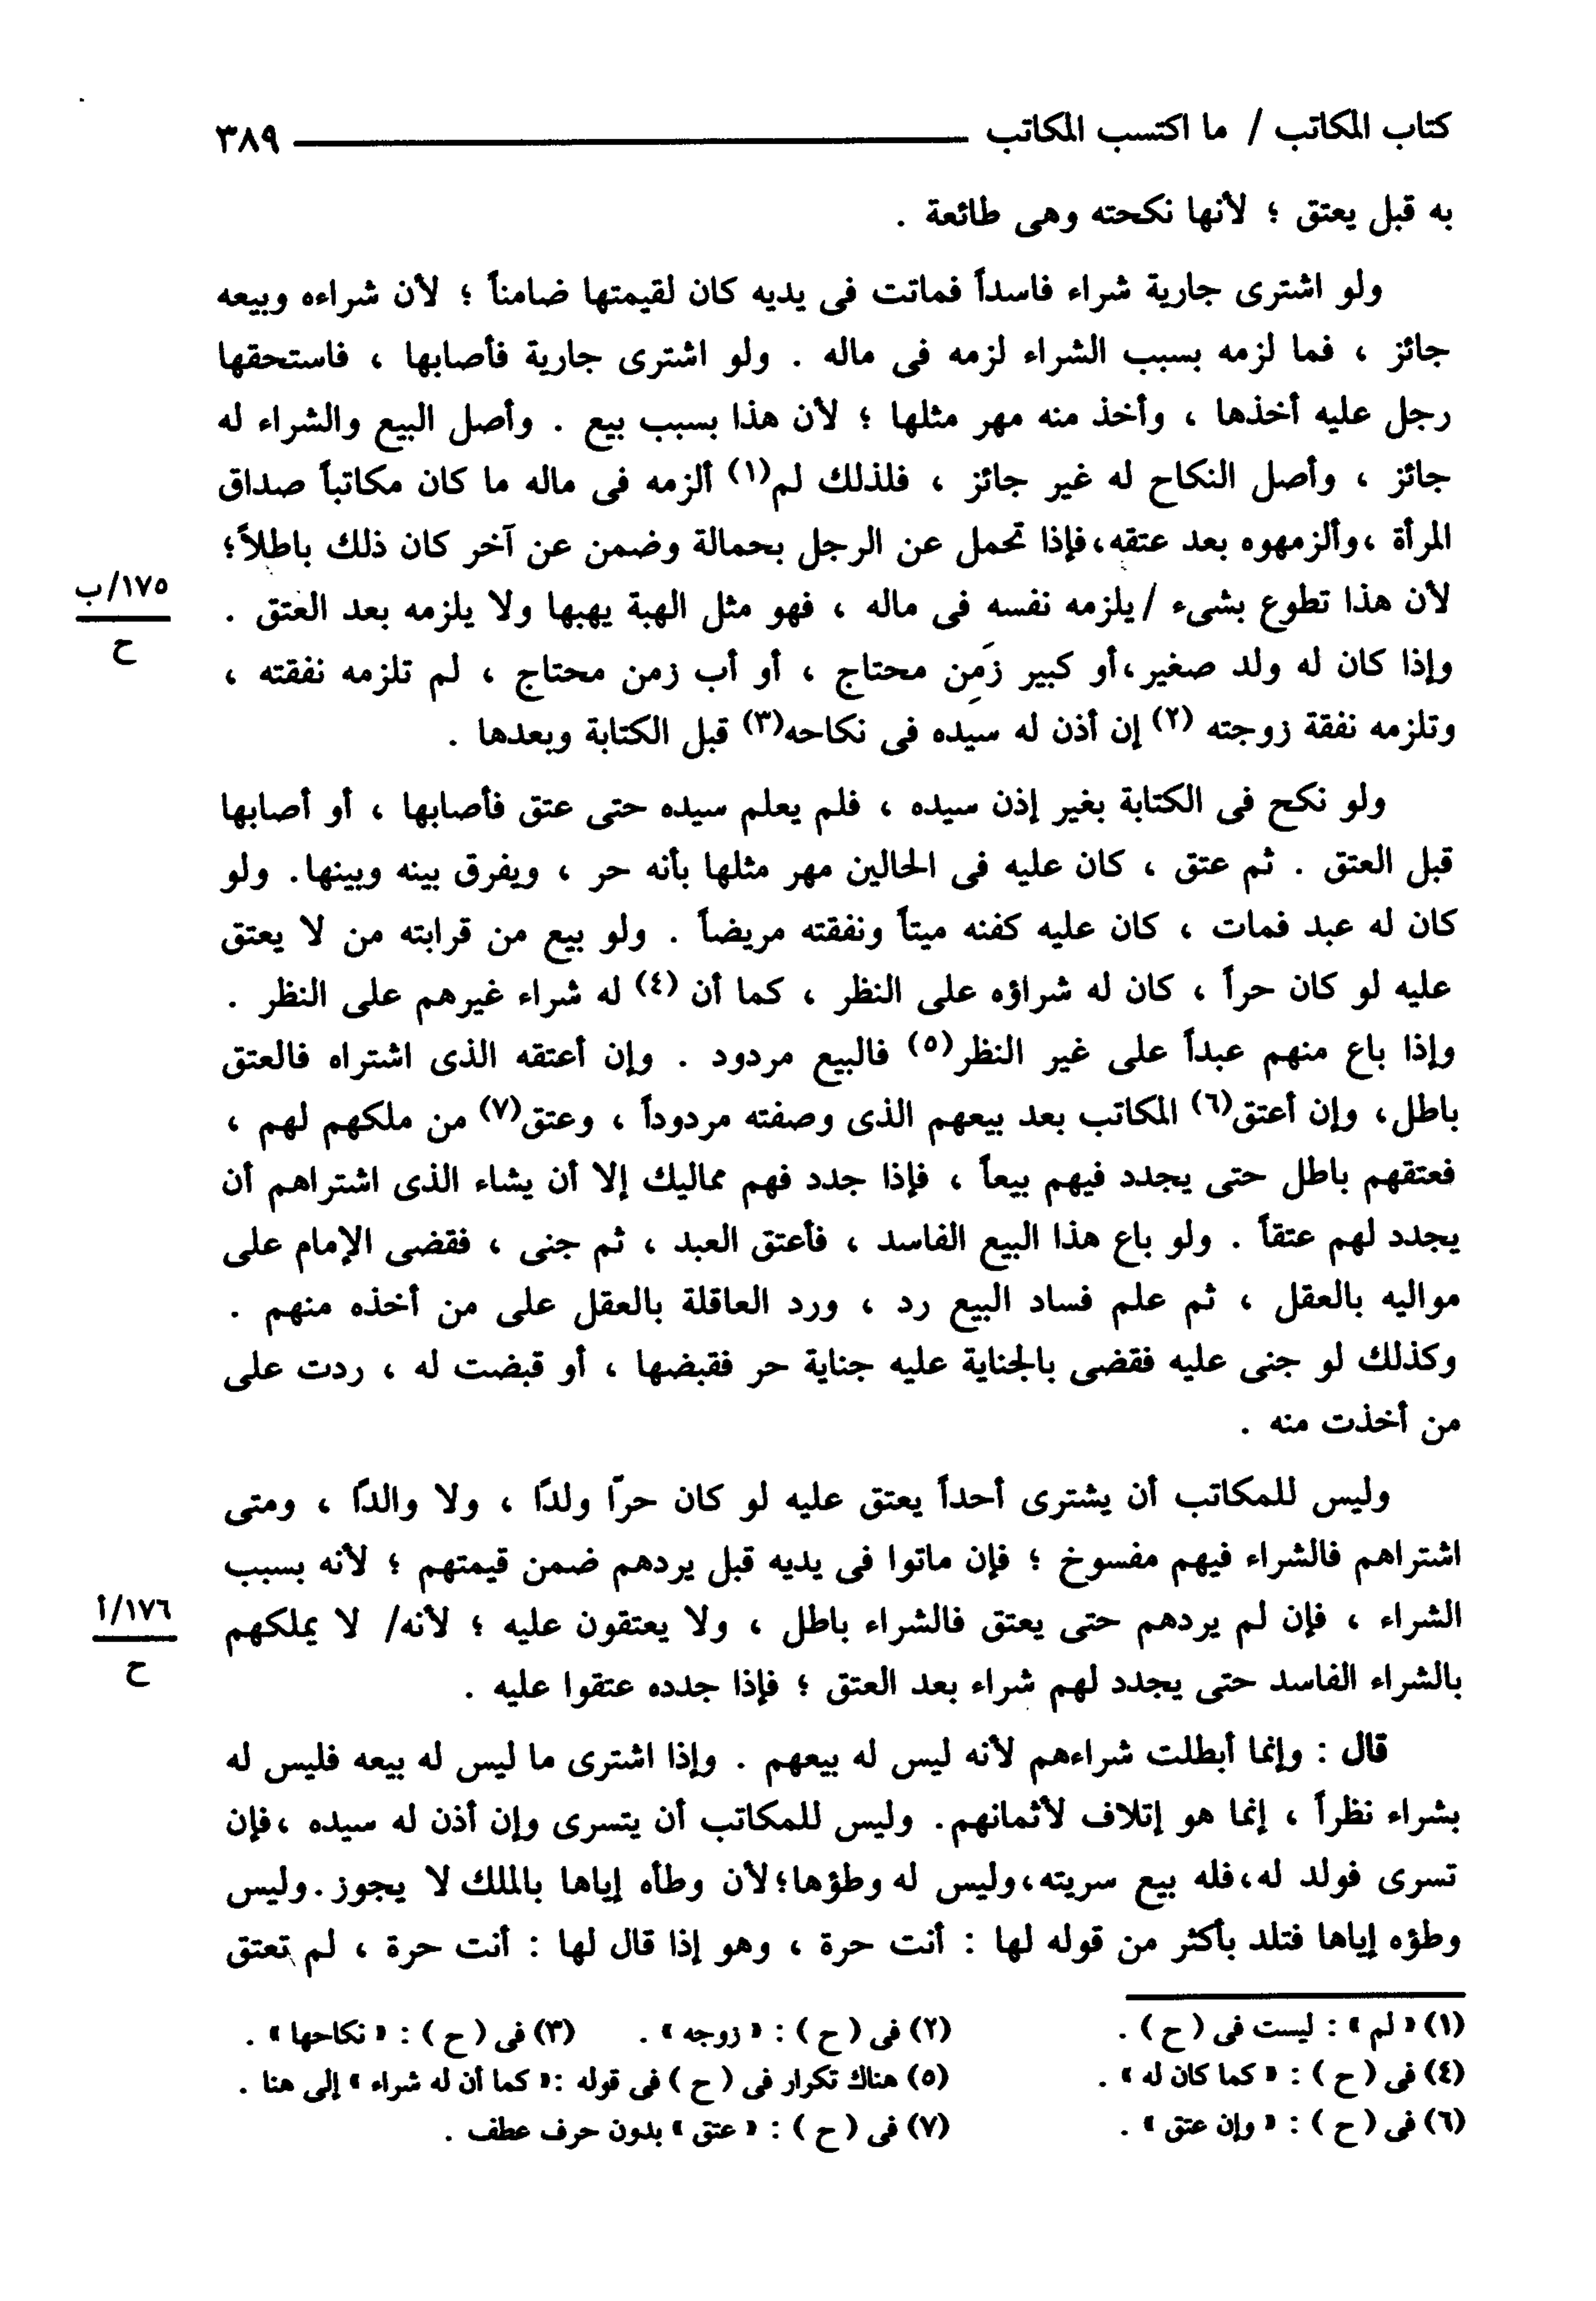 كتاب المكاتب / ما اكتسب المكاتب ــــــــــــــ ٣٨٩
به قبل يعتق ؛ لأنها نكحته وهى طائعة .
ولو اشترى جارية شراء فاسداً فماتت فى يديه كان لقيمتها ضامناً ؛ لأن شراءه وبيعه
جائز ، فما لزمه بسبب الشراء لزمه فى ماله . ولو اشترى جارية فأصابها ، فاستحقها
رجل عليه أخذها ، وأخذ منه مهر مثلها ؛ لأن هذا بسبب بيع . وأصل البيع والشراء له
جائز ، وأصل النكاح له غير جائز ، فلذلك لم(١) ألزمه فى ماله ما كان مكاتباً صداق
المرأة ،وألزمهوه بعد عتقه،فإذا تحمل عن الرجل بحمالة وضمن عن آخر كان ذلك باطلاً؛
لأن هذا تطوع بشىء /يلزمه نفسه فى ماله ، فهو مثل الهبة يهبها ولا يلزمه بعد العتق .
١٧٥/ب
ح
وإذا كان له ولد صغير،أو كبير زَمِن محتاج ، أو أب زمن محتاج ، لم تلزمه نفقته ،
وتلزمه نفقة زوجته (٢) إن أذن له سيده فى نكاحه(٣) قبل الكتابة وبعدها .
ولو نكح فى الكتابة بغير إذن سيده ، فلم يعلم سيده حتى عتق فأصابها ، أو أصابها
قبل العتق . ثم عتق ، كان عليه فى الحالين مهر مثلها بأنه حر ، ويفرق بينه وبينها. ولو
كان له عبد فمات ، كان عليه كفنه ميتاً ونفقته مريضاً . ولو بيع من قرابته من لا يعتق
عليه لو كان حراً ، كان له شراؤه على النظر ، كما أن (٤) له شراء غيرهم على النظر .
وإذا باع منهم عبداً على غير النظر(٥) فالبيع مردود . وإن أعتقه الذى اشتراه فالعتق
باطل، وإن أعتق(٦) المكاتب بعد بيعهم الذى وصفته مردوداً ، وعتق(٧) من ملكهم لهم ،
فعتقهم باطل حتى يجدد فيهم بيعاً ، فإذا جدد فهم مماليك إلا أن يشاء الذى اشتراهم أن
يجدد لهم عتقاً . ولو باع هذا البيع الفاسد ، فأعتق العبد ، ثم جنى ، فقضى الإمام على
مواليه بالعقل ، ثم علم فساد البيع رد ، ورد العاقلة بالعقل على من أخذه منهم .
وكذلك لو جنى عليه فقضى بالجناية عليه جناية حر فقبضها ، أو قبضت له ، ردت على
من أخذت منه .
وليس للمكاتب أن يشترى أحداً يعتق عليه لو كان حرّا ولدًا ، ولا والدًا ، ومتى
اشتراهم فالشراء فيهم مفسوخ ؛ فإن ماتوا فى يديه قبل يردهم ضمن قيمتهم ؛ لأنه بسبب
الشراء ، فإن لم يردهم حتى يعتق فالشراء باطل ، ولا يعتقون عليه ؛ لأنه/ لا يملكهم
١٧٦/أ
ح
بالشراء الفاسد حتى يجدد لهم شراء بعد العتق ؛ فإذا جدده عتقوا عليه .
قال : وإنما أبطلت شراءهم لأنه ليس له بيعهم . وإذا اشترى ما ليس له بيعه فليس له
بشراء نظراً ، إنما هو إتلاف لأثمانهم. وليس للمكاتب أن يتسرى وإن أذن له سيده ،فإن
تسرى فولد له،فله بيع سريته،وليس له وطؤها؛لأن وطأه إياها بالملك لا يجوز.وليس
وطؤه إياها فتلد بأكثر من قوله لها : أنت حرة ، وهو إذا قال لها : أنت حرة ، لم تعتق
(١) « لم » : ليست فى ( ح ) . (٢) فى ( ح ) : « زوجه » . (٣) فى ( ح ) : « نكاحها » .
(٤) فى ( ح ) : « كما كان له » . (٥) هناك تكرار فى ( ح ) فى قوله :« كما أن له شراء » إلى هنا .
(٦) فى ( ح ) : « وإن عتق » . (٧) فى ( ح ) : « عتق » بدون حرف عطف .